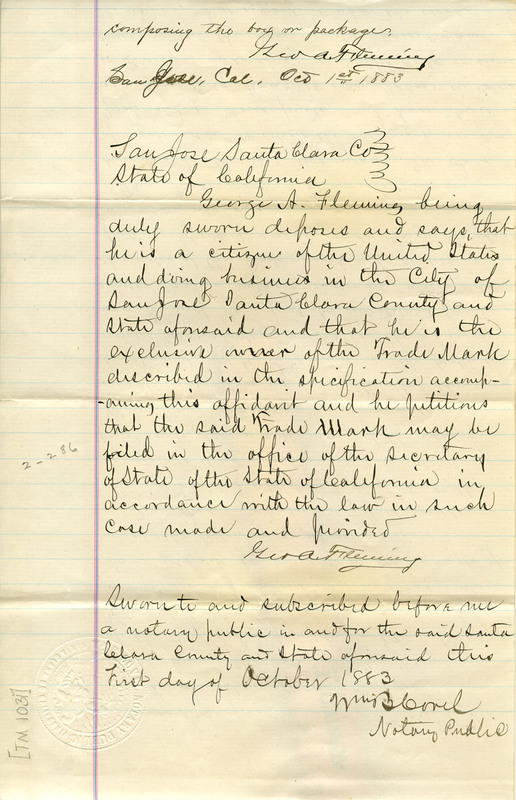 composing the box or package.
Geo A. Fleming
San Jose, Cal, Oct 1st 1883
San Jose Santa Clara Co
State of California
George A. Fleming being
duly sworn deposes and says, that
he is a citizen of the United States
and doing business in the City of
San Jose Santa Clara County and
State aforsaid and that he is the
exclusive owner of the Trade Mark
described in the specification accomp-
-aning this affidavit and he petitions
that the said Trade Mark may be
filed in the office of the secretary
of State of the State of California in
accordance with the law in such
case made and provided
Geo A. Fleming
Sworn to and subscribed before me
a notary public in and for the said Santa
Clara County and State aforsaid this
First day of October 1883
Notary Public
2-286
[TM 1031]